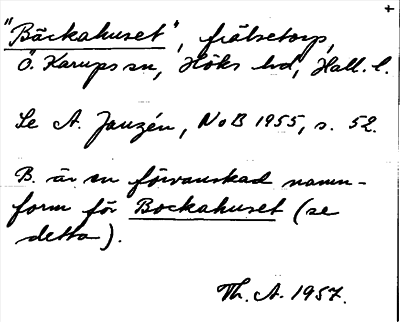 "Bäckahuset", frälsetorp,
Ö. Karups sn, Höks hd, Hall. l.
Se A. Janzén, NoB 1955, s. 52.
B. är en förvanskad namn-
form för Bockahuset (se
detta).
Th. A. 1957.